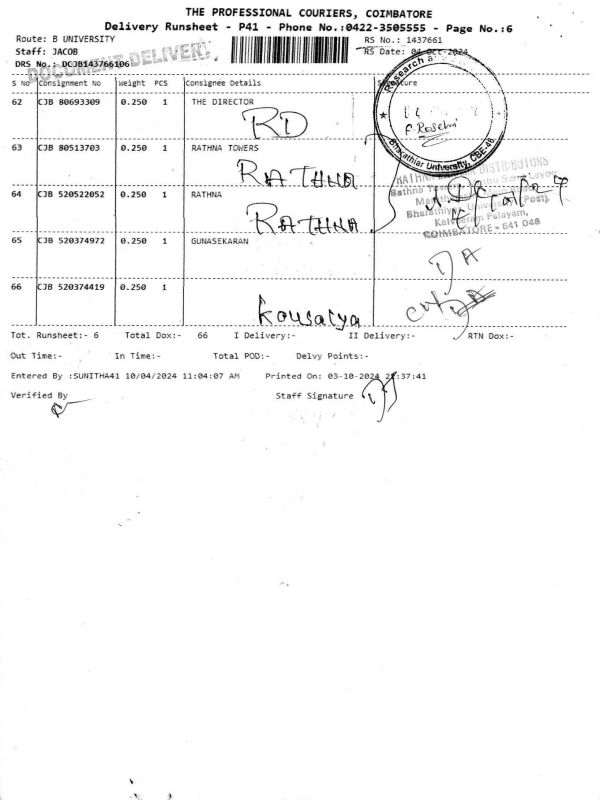 THE PROFESSIONAL COURIERS, COIMBATORE
Delivery Runsheet - P41 - Phone No.:0422-3505555 - Page No.:6
Route: B UNIVERSITY RS No.: 1437661
Staff: JACOB RS Date: 04-Oct-2024
DRS No.: DCJB143766106
DOCUMENT DELIVERY
S No Consignment No Weight PCS Consignee Details Signature
62 CJB 80693309 0.250 1 THE DIRECTOR
RD
Research
P. Roselin
Bharathiar University, CBE-46
63 CJB 80513703 0.250 1 RATHNA TOWERS
RATHNA
DISTRIBUTORS
Rathna
Bharathiyar University (Post),
Kalveeram Palayam,
COIMBATORE - 641 046
64 CJB 520522052 0.250 1 RATHNA
RATHNA
65 CJB 520374972 0.250 1 GUNASEKARAN
66 CJB 520374419 0.250 1
Kousalya
Tot. Runsheet:- 6 Total Dox:- 66 I Delivery:- II Delivery:- RTN Dox:-
Out Time:- In Time:- Total POD:- Delvy Points:-
Entered By :SUNITHA41 10/04/2024 11:04:07 AM Printed On: 03-10-2024 :37:41
Verified By Staff Signature